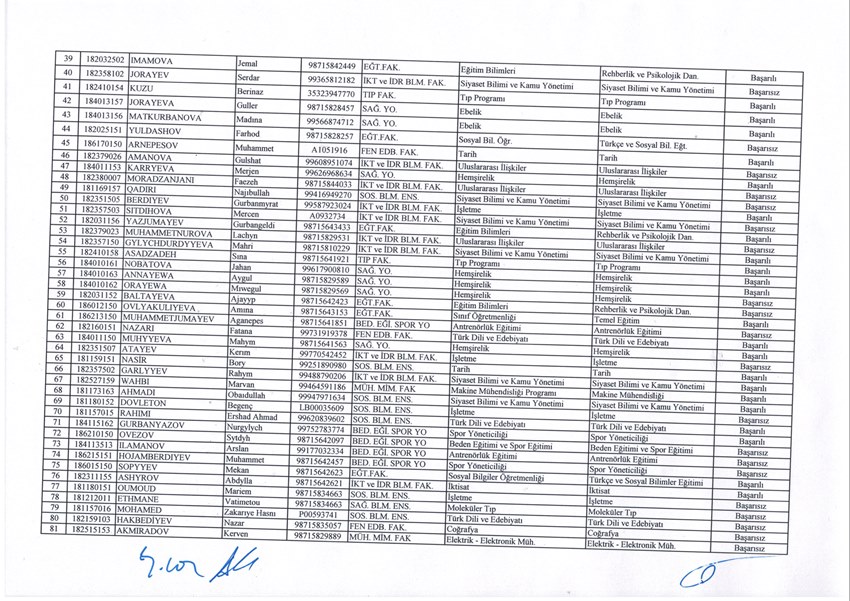 39 182032502 IMAMOVA Jemal 98715842449 EĞT.FAK. Eğitim Bilimleri Rehberlik ve Psikolojik Dan. Başarılı
40 182358102 JORAYEV Serdar 99365812182 İKT ve İDR BLM. FAK. Siyaset Bilimi ve Kamu Yönetimi Siyaset Bilimi ve Kamu Yönetimi Başarısız
41 182410154 KUZU Berinaz 35323947770 TIP FAK. Tıp Programı Tıp Programı Başarılı
42 184013157 JORAYEVA Guller 98715828457 SAĞ. YO. Ebelik Ebelik Başarılı
43 184013156 MATKURBANOVA Madına 99566874712 SAĞ. YO. Ebelik Ebelik Başarılı
44 182025151 YULDASHOV Farhod 98715828257 EĞT.FAK. Sosyal Bil. Öğr. Türkçe ve Sosyal Bil. Eğt. Başarılı
45 186170150 ARNEPESOV Muhammet A1051916 FEN EDB. FAK. Tarih Tarih Başarısız
46 182379026 AMANOVA Gulshat 99608951074 İKT ve İDR BLM. FAK. Uluslararası İlişkiler Uluslararası İlişkiler Başarılı
47 184011153 KARRYEVA Merjen 99626968634 SAĞ. YO. Hemşirelik Hemşirelik Başarılı
48 182380007 MORADZANJANI Faezeh 98715844033 İKT ve İDR BLM. FAK. Uluslararası İlişkiler Uluslararası İlişkiler Başarılı
49 181169157 QADIRI Najıbullah 99416949270 SOS. BLM. ENS. Siyaset Bilimi ve Kamu Yönetimi Siyaset Bilimi ve Kamu Yönetimi Başarılı
50 182351505 BERDIYEV Gurbanmyrat 99587923024 İKT ve İDR BLM. FAK. İşletme İşletme Başarılı
51 182357503 SITDIHOVA Mercen A0932734 İKT ve İDR BLM. FAK. Siyaset Bilimi ve Kamu Yönetimi Siyaset Bilimi ve Kamu Yönetimi Başarılı
52 182031156 YAZJUMAYEV Gurbangeldi 98715643433 EĞT.FAK. Eğitim Bilimleri Rehberlik ve Psikolojik Dan. Başarısız
53 182379023 MUHAMMETNUROVA Lachyn 98715829531 İKT ve İDR BLM. FAK. Uluslararası İlişkiler Uluslararası İlişkiler Başarılı
54 182357150 GYLYCHDURDYYEVA Mahri 98715810229 İKT ve İDR BLM. FAK. Siyaset Bilimi ve Kamu Yönetimi Siyaset Bilimi ve Kamu Yönetimi Başarılı
55 182410158 ASADZADEH Sına 98715641921 TIP FAK. Tıp Programı Tıp Programı Başarılı
56 184010161 NOBATOVA Jahan 99617900810 SAĞ. YO. Hemşirelik Hemşirelik Başarılı
57 184010163 ANNAYEWA Aygul 98715829589 SAĞ. YO. Hemşirelik Hemşirelik Başarılı
58 184010162 ORAYEWA Mıwegul 98715829569 SAĞ. YO. Hemşirelik Hemşirelik Başarılı
59 182031152 BALTAYEVA Ajayyp 98715642423 EĞT.FAK. Eğitim Bilimleri Rehberlik ve Psikolojik Dan. Başarılı
60 186012150 OVLYAKULIYEVA Amına 98715643153 EĞT.FAK. Sınıf Öğretmenliği Temel Eğitim Başarılı
61 186213150 MUHAMMETJUMAYEV Aganepes 98715641851 BED. EĞİ. SPOR YO Antrenörlük Eğitimi Antrenörlük Eğitimi Başarısız
62 182160151 NAZARI Fatana 99731919378 FEN EDB. FAK. Türk Dili ve Edebiyatı Türk Dili ve Edebiyatı Başarılı
63 184011150 MUHYYEVA Mahym 98715641563 SAĞ. YO. Hemşirelik Hemşirelik Başarılı
64 182351507 ATAYEV Kerım 99770542452 İKT ve İDR BLM. FAK. İşletme İşletme Başarısız
65 181159151 NASİR Bory 99251890980 SOS. BLM. ENS. Tarih Tarih Başarılı
66 182357502 GARLYYEV Rahym 99488790206 İKT ve İDR BLM. FAK. Siyaset Bilimi ve Kamu Yönetimi Siyaset Bilimi ve Kamu Yönetimi Başarısız
67 182527159 WAHBI Marvan 99464591186 MÜH. MİM. FAK Makine Mühendisliği Programı Makine Mühendisliği Başarılı
68 181173163 AHMADI Obaıdullah 99947971634 SOS. BLM. ENS. Siyaset Bilimi ve Kamu Yönetimi Siyaset Bilimi ve Kamu Yönetimi Başarılı
69 181180152 DOVLETON Begenç LB00035609 SOS. BLM. ENS. İşletme İşletme Başarısız
70 181157015 RAHIMI Ershad Ahmad 99620839602 SOS. BLM. ENS. Türk Dili ve Edebiyatı Türk Dili ve Edebiyatı Başarılı
71 184115162 GURBANYAZOV Nurgylych 99752783774 BED. EĞİ. SPOR YO Spor Yöneticiliği Spor Yöneticiliği Başarısız
72 186210150 OVEZOV Sytdyh 98715642097 BED. EĞİ. SPOR YO Beden Eğitimi ve Spor Eğitimi Beden Eğitimi ve Spor Eğitimi Başarısız
73 184113513 ILAMANOV Arslan 99177032334 BED. EĞİ. SPOR YO Antrenörlük Eğitimi Antrenörlük Eğitimi Başarılı
74 186215151 HOJAMBERDIYEV Muhammet 98715642457 BED. EĞİ. SPOR YO Spor Yöneticiliği Spor Yöneticiliği Başarısız
75 186015150 SOPYYEV Mekan 98715642623 EĞT.FAK. Sosyal Bilgiler Öğretmenliği Türkçe ve Sosyal Bilimler Eğitimi Başarılı
76 182311155 ASHYROV Abdylla 98715642621 İKT ve İDR BLM. FAK. İktisat İktisat Başarılı
77 181180151 OUMOUD Mariem 98715834663 SOS. BLM. ENS. İşletme İşletme Başarılı
78 181212011 ETHMANE Vatimetou 98715834663 SAĞ. BLM. ENS. Moleküler Tıp Moleküler Tıp Başarılı
79 181157016 MOHAMED Zakarıye Hasnı P00593741 SOS. BLM. ENS. Türk Dili ve Edebiyatı Türk Dili ve Edebiyatı Başarısız
80 182159103 HAKBEDIYEV Nazar 98715835057 FEN EDB. FAK. Coğrafya Coğrafya Başarısız
81 182515153 AKMIRADOV Kerven 98715829889 MÜH. MİM. FAK Elektrik - Elektronik Müh. Elektrik - Elektronik Müh. Başarısız